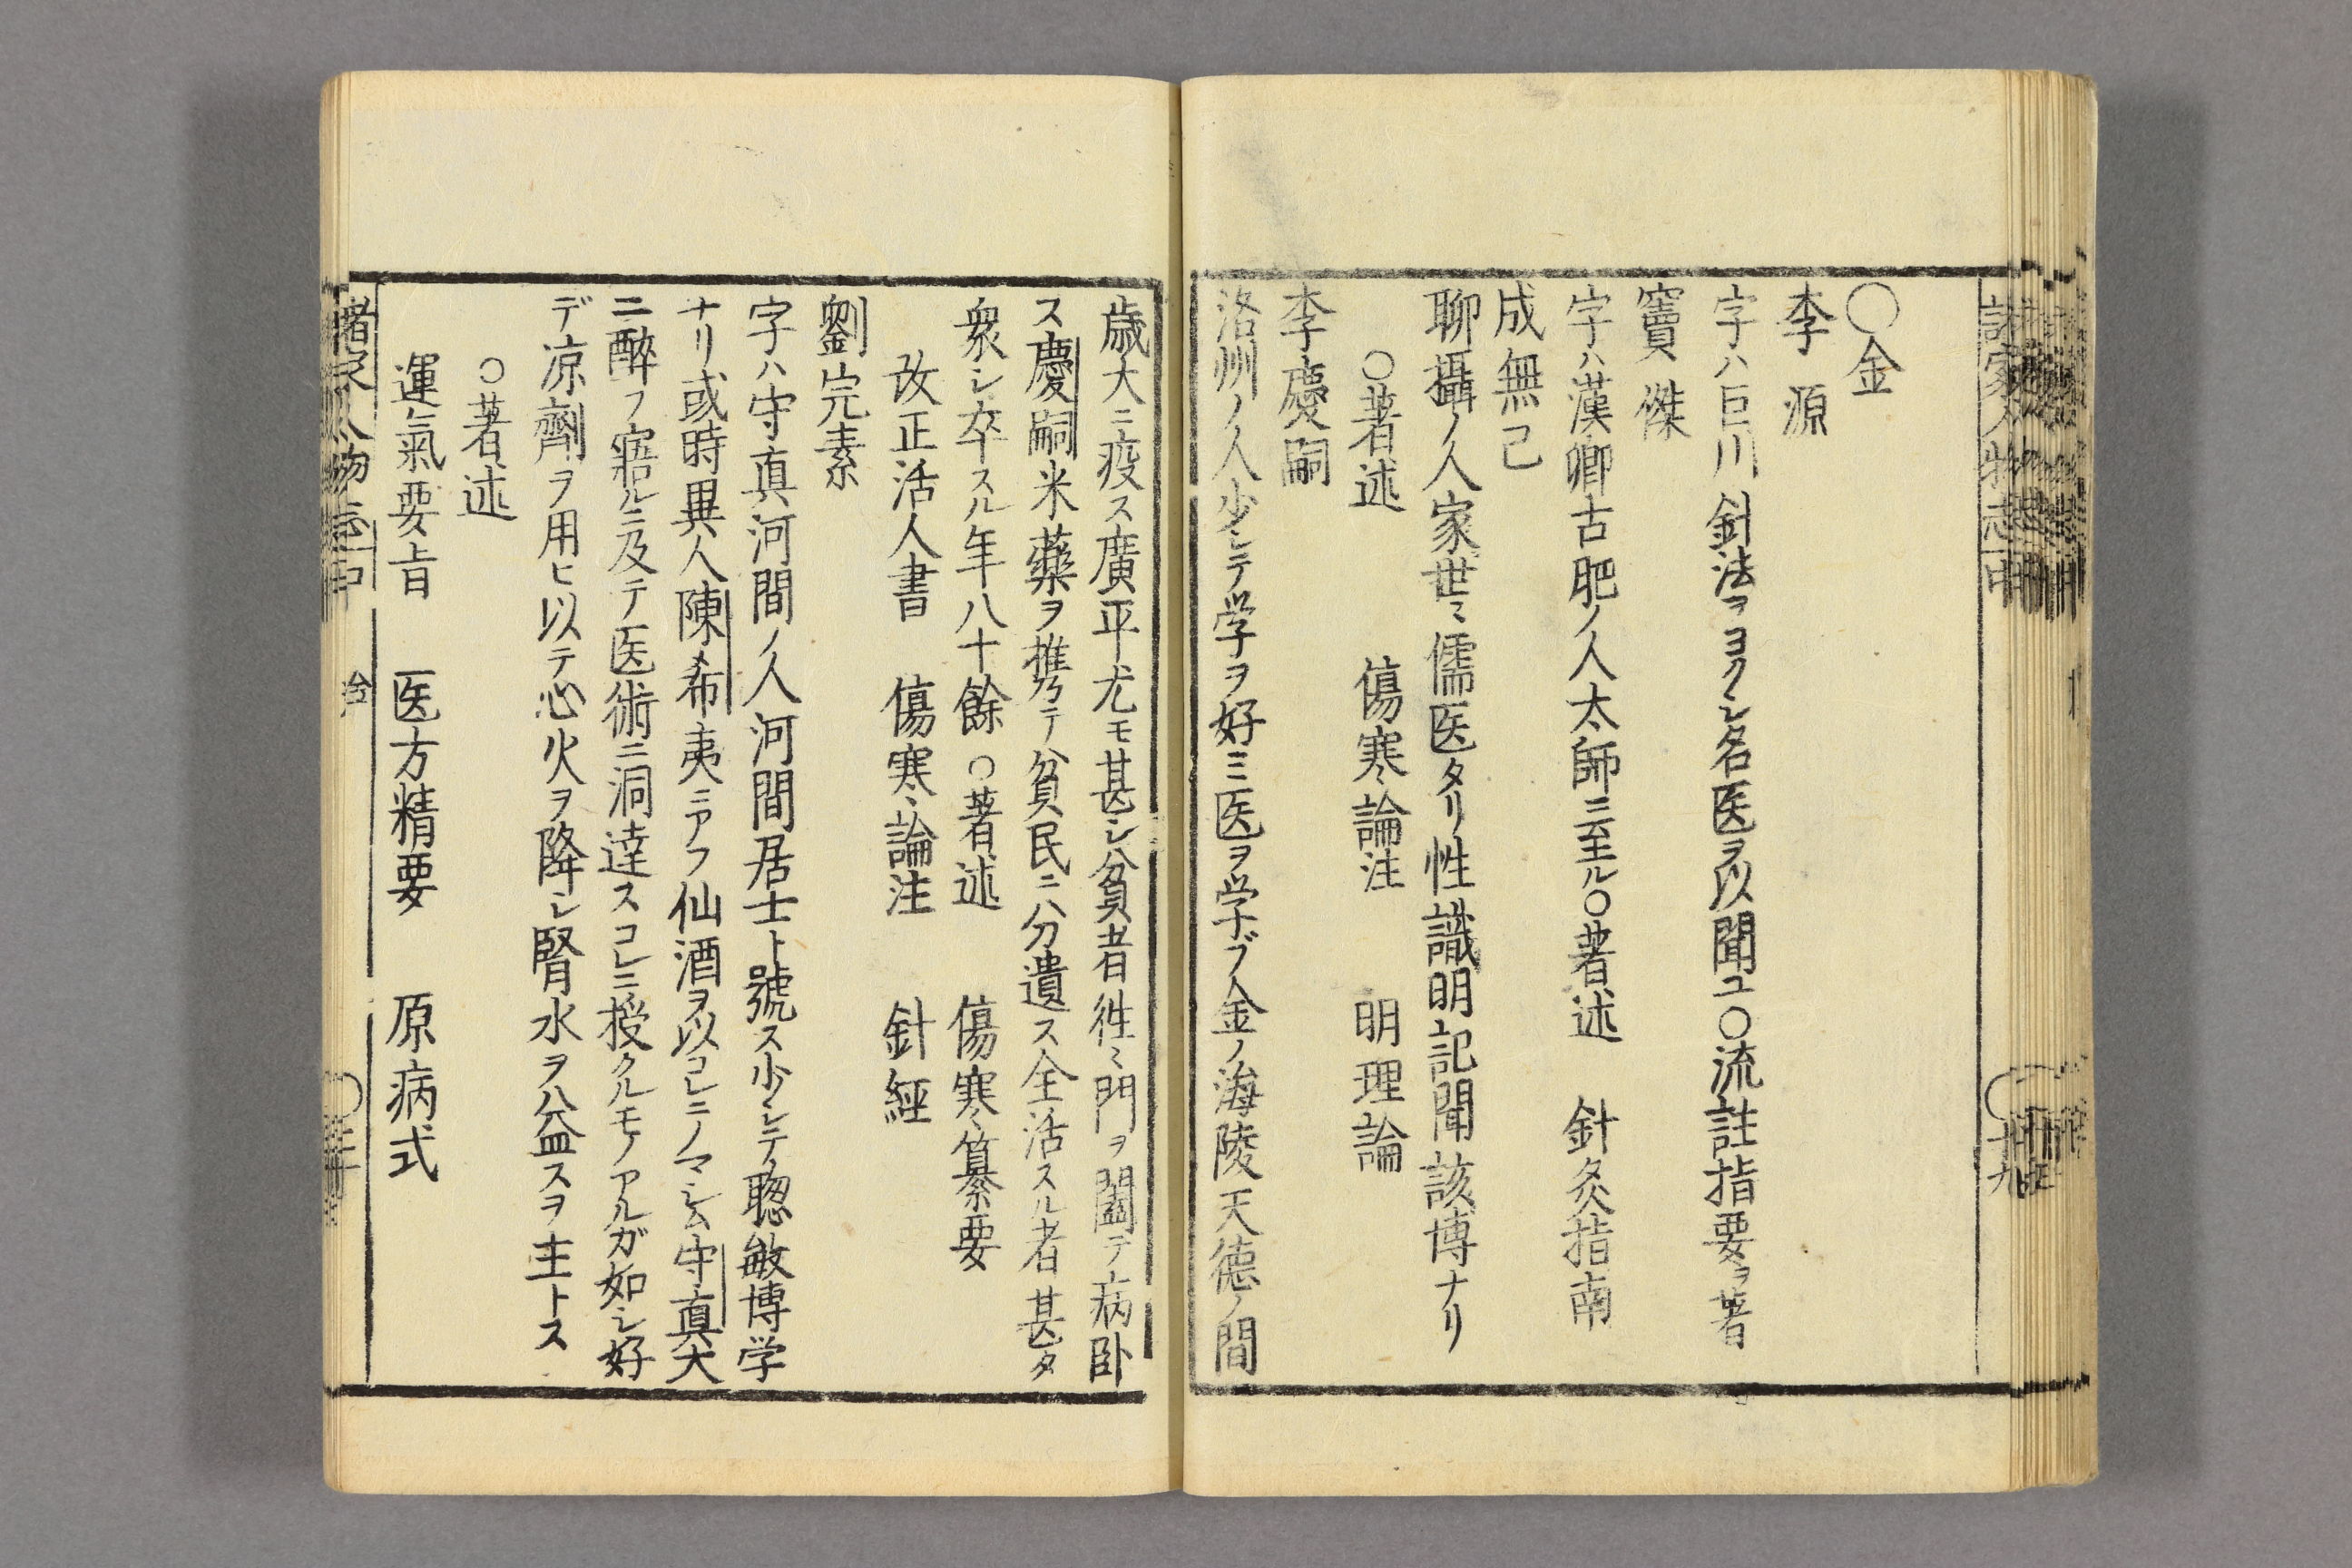 ○金
李源
字ハ巨川針法ヲヨクシ名医ヲ以聞ユ○流註指要ヲ著
竇傑
字ハ漢卿古肥ノ人太師ニ至ル○著述　針灸指南
成無己
聊攝ノ人家世ミ儒医タリ性識明記聞該博ナリ
○著述　傷寒論注　明理論
李慶嗣
洛州ノ人少シテ学ヲ好ミ医ヲ学ブ金ノ海陵天徳ノ間
歳大ニ疫ス廣平尤モ甚シ貧者徃ミ門ヲ闔テ病卧
ス慶嗣米藥ヲ携ヘテ貧民ニ分遺ス全活スル者甚タ
衆シ卒スル年八十餘○著述　傷寒纂要
改正活人書　傷寒論注　針經
劉完素
字ハ守真河間ノ人河間居士ト號ス少シテ聰敏博学
ナリ或時異人陳希夷ニアフ仙酒ヲ以コレニノマシム守真大
ニ醉フ寤ルニ及テ医術ニ洞達スコレニ授クルモノアルガ如シ好
デ凉劑ヲ用ヒ以テ心火ヲ降シ腎水ヲ益スヲ主トス
○著述
運氣要旨　医方精要　原病式